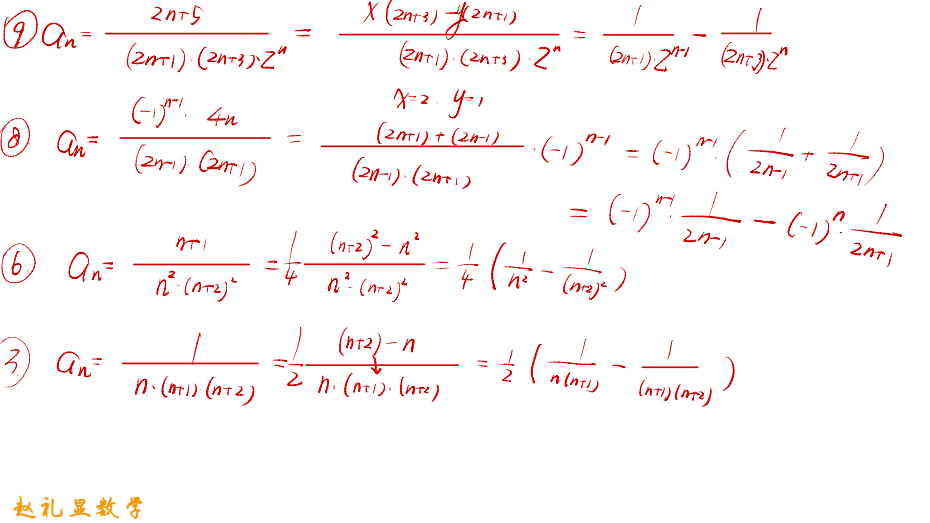 ⑨ aₙ = (2n+5)/((2n+1)·(2n+3)·2ⁿ) = (x(2n+3)-y(2n+1))/((2n+1)·(2n+3)·2ⁿ) = 1/((2n+1)·2ⁿ⁻¹) - 1/((2n+3)·2ⁿ)
x=2 y=1
⑧ aₙ = ((-1)ⁿ⁻¹·4n)/((2n-1)·(2n+1)) = ((2n+1)+(2n-1))/((2n-1)·(2n+1)) ·(-1)ⁿ⁻¹ = (-1)ⁿ⁻¹·(1/(2n-1) + 1/(2n+1))
= (-1)ⁿ⁻¹·1/(2n-1) - (-1)ⁿ·1/(2n+1)
⑥ aₙ = (n+1)/(n²·(n+2)²) = 1/4 ((n+2)²-n²)/(n²·(n+2)²) = 1/4 (1/n² - 1/(n+2)²)
③ aₙ = 1/(n·(n+1)·(n+2)) = 1/2 ((n+2)-n)/(n·(n+1)·(n+2)) = 1/2 (1/(n(n+1)) - 1/((n+1)(n+2)))
赵礼显数学